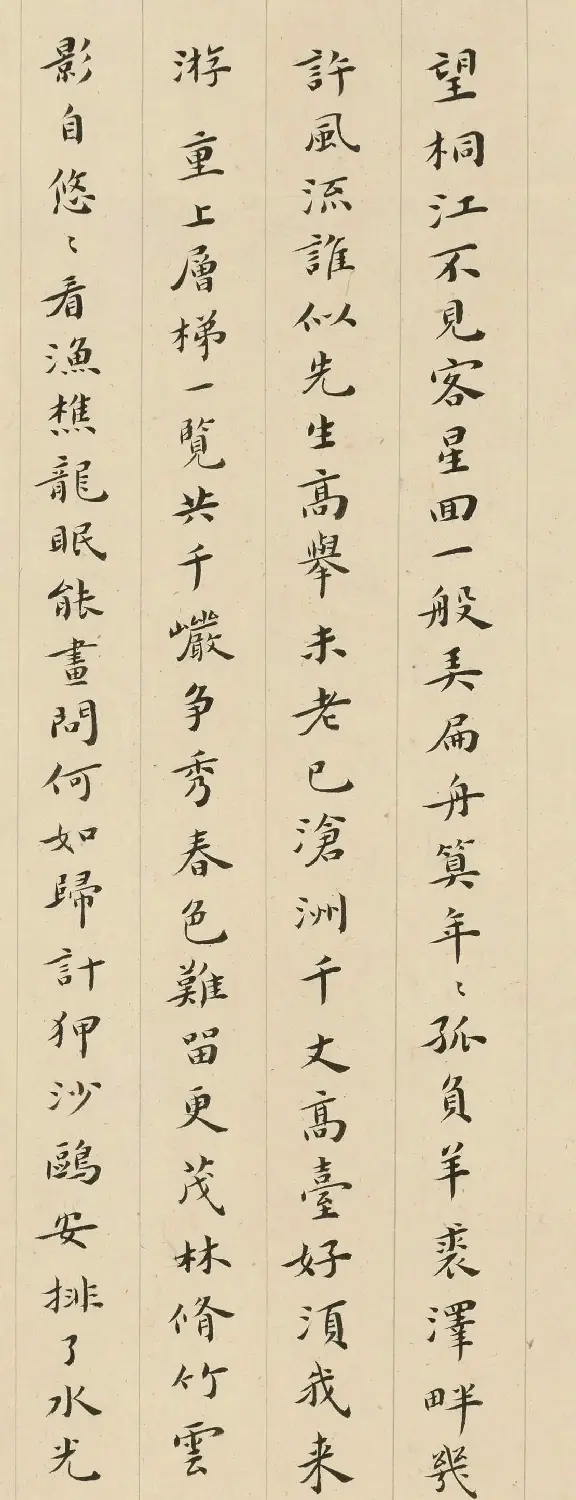 望桐江不見客星回一般美扁舟算年〻孤負羊裘澤畔幾
許風流誰似先生高舉未老已滄洲千丈高臺好須我来
游重上層梯一覧共千巖争秀春色難留更茂林脩竹雲
影自悠〻看漁樵龍眠能畫問何如歸計狎沙鷗安排了水光